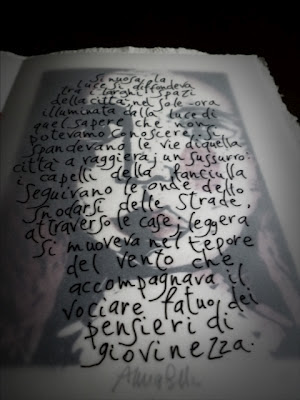 Sinuosa la
luce si diffondeva
tra i larghi spazi
della città, nel sole-ora
illuminata dalla luce di
quel sapere che non
potevamo conoscere, si
spandevano le vie di quella
città a raggiera; un sussurro:
i capelli della fanciulla
seguivano le onde dello
snodarsi delle strade,
attraverso le case, leggera
si muoveva nel tepore
del vento che
accompagnava il
vociare fatuo dei
pensieri di
giovinezza.